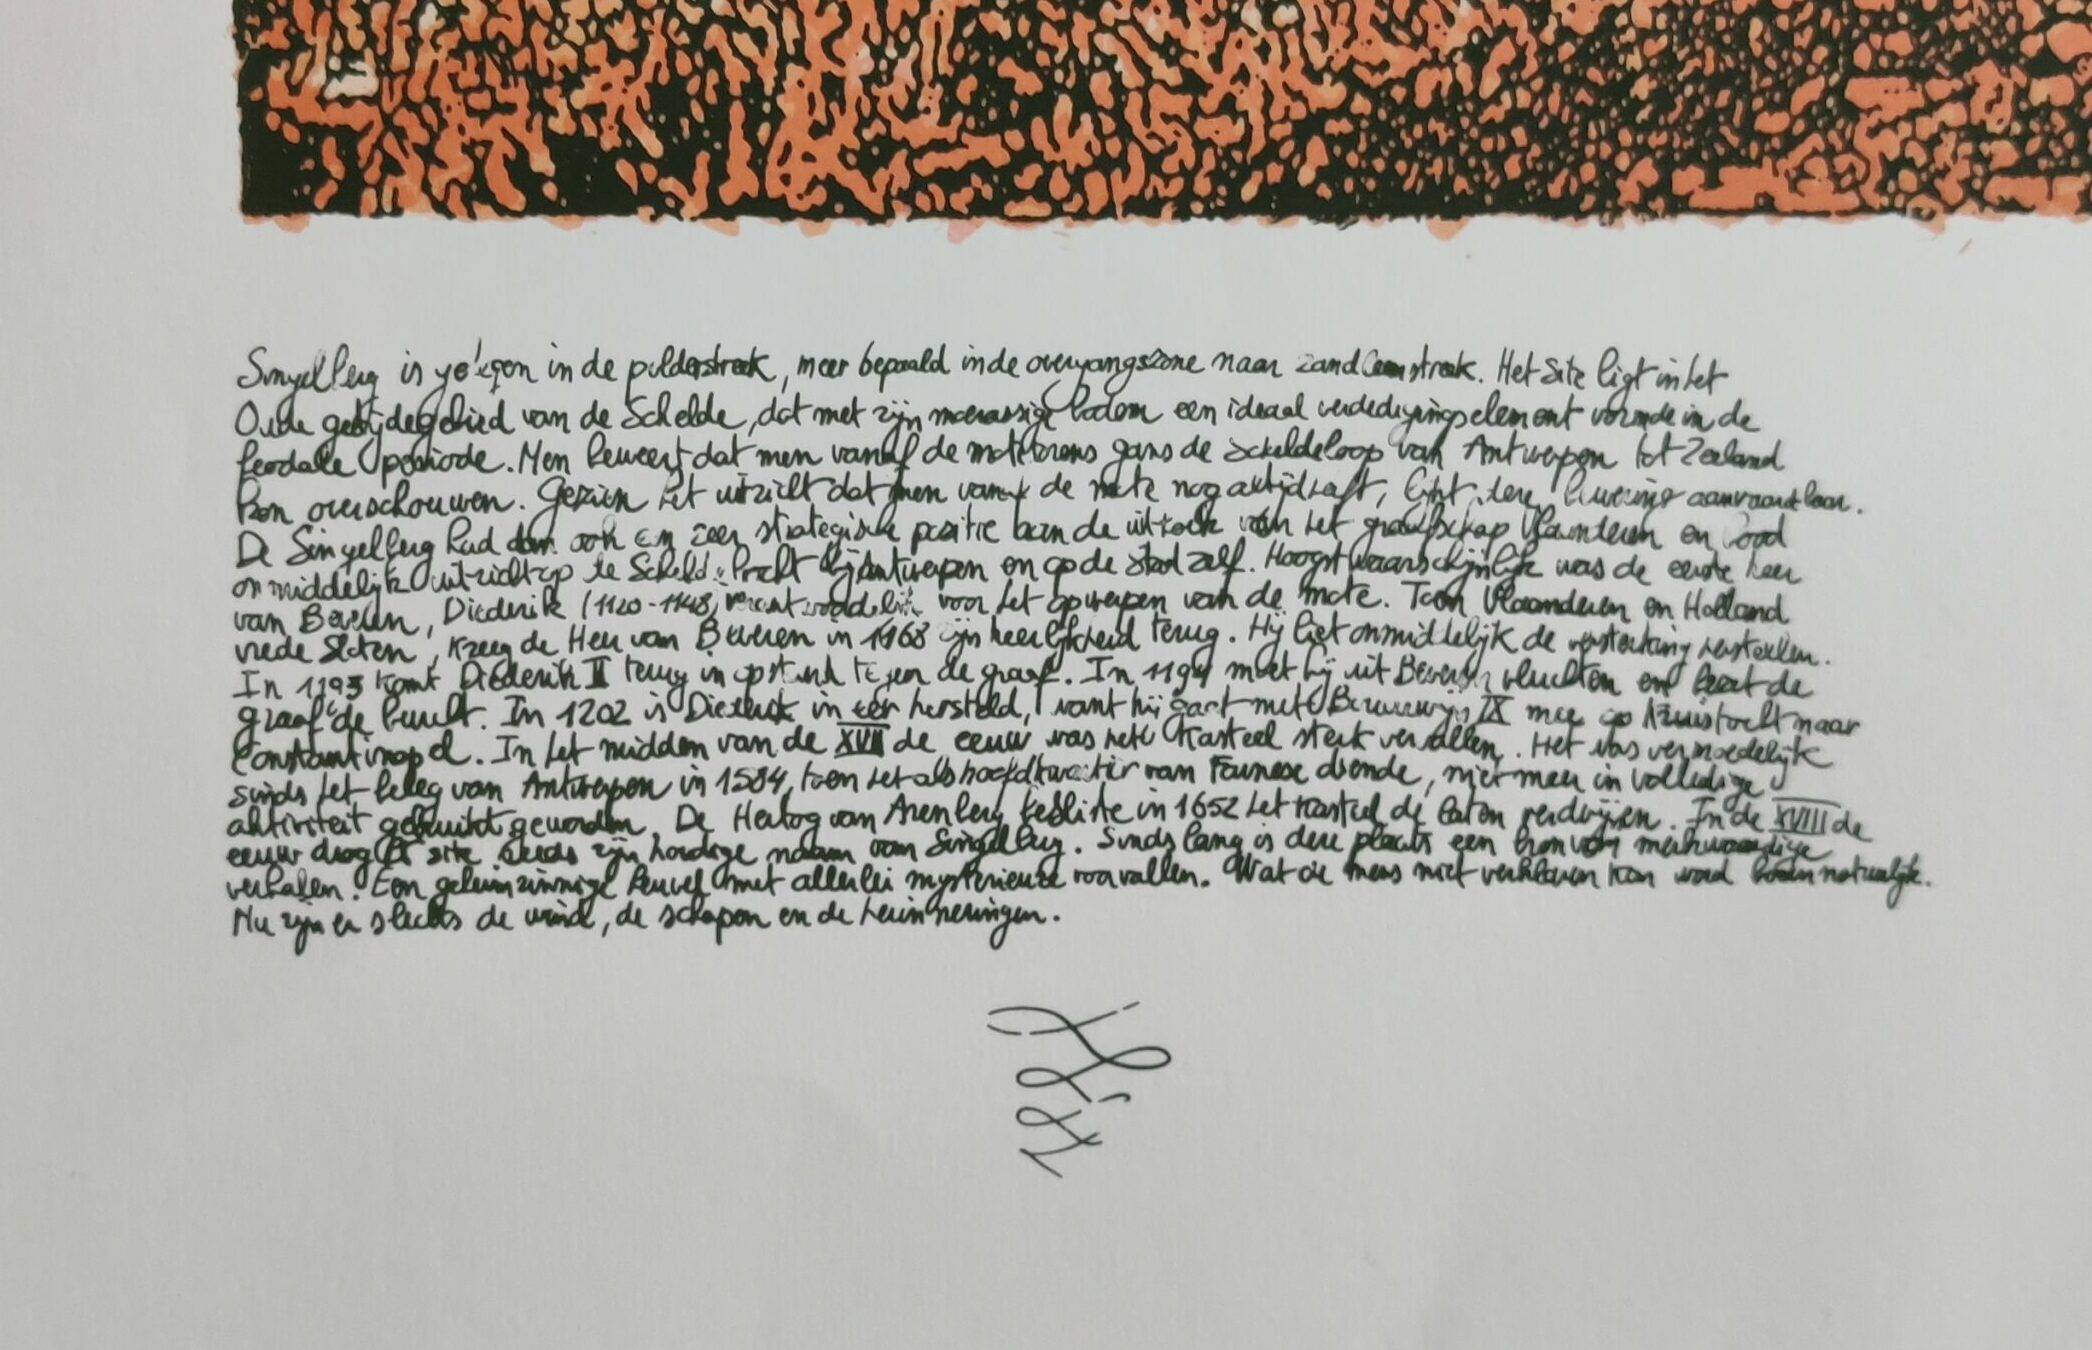 Singelberg is gelegen in de polderstreek, meer bepaald in de overgangszone naar zandleemstreek. Het site ligt in het
Oude getijdegebied van de Schelde, dat met zijn moerassige bodem een ideaal verdedigingselement vormde in de
feodale periode. Men beweert dat men vanaf de mottetorens gans de Scheldeloop van Antwerpen tot Zeeland
kon overschouwen. Gezien het uitzicht dat men vanaf de mote nog altijd heeft, lijkt deze bewering aanvaardbaar.
De Singelberg had dan ook een zeer strategische positie aan de uithoek van het graafschap Vlaanderen en bood
onmiddelijk uitzicht op de Schelde bocht bij Antwerpen en op de stad zelf. Hoogstwaarschijnlijk was de eerste heer
van Beveren, Diederik (1120-1148) verantwoordelijk voor het opwerpen van de mote. Toen Vlaanderen en Holland
vrede sloten, kreeg de Heer van Beveren in 1168 zijn heerlijkheid terug. Hij liet onmiddelijk de versterking herstellen.
In 1193 komt Diederik II terug in opstand tegen de graaf. In 1194 moet hij uit Beveren vluchten en leert de
graaf de burcht. In 1202 is Diederik in eer hersteld, want hij gaat met Bouwewijn IX mee op Kruistocht naar
Constantinopel. In het midden van de XVII de eeuw was het Kasteel sterk vervallen. Het was vermoedelijk
sinds het beleg van Antwerpen in 1584, toen het als hoofdkwartier van Farnese diende, niet meer in volledige
aktiviteit gebruikt geworden. De Hertog van Arenberg besliste in 1652 het kasteel te laten verdwijnen. In de XVIII de
eeuw droeg de site reeds zijn huidige naam van Singelberg. Sinds lang is deze plaats een bron van merkwaardige
verhalen. Een geheimzinnige heuvel met allerlei mysterieuze voorvallen. Wat de mens niet verklaren kan word bovennatuurlijk.
Nu zijn er slechts de wind, de schapen en de herinneringen.